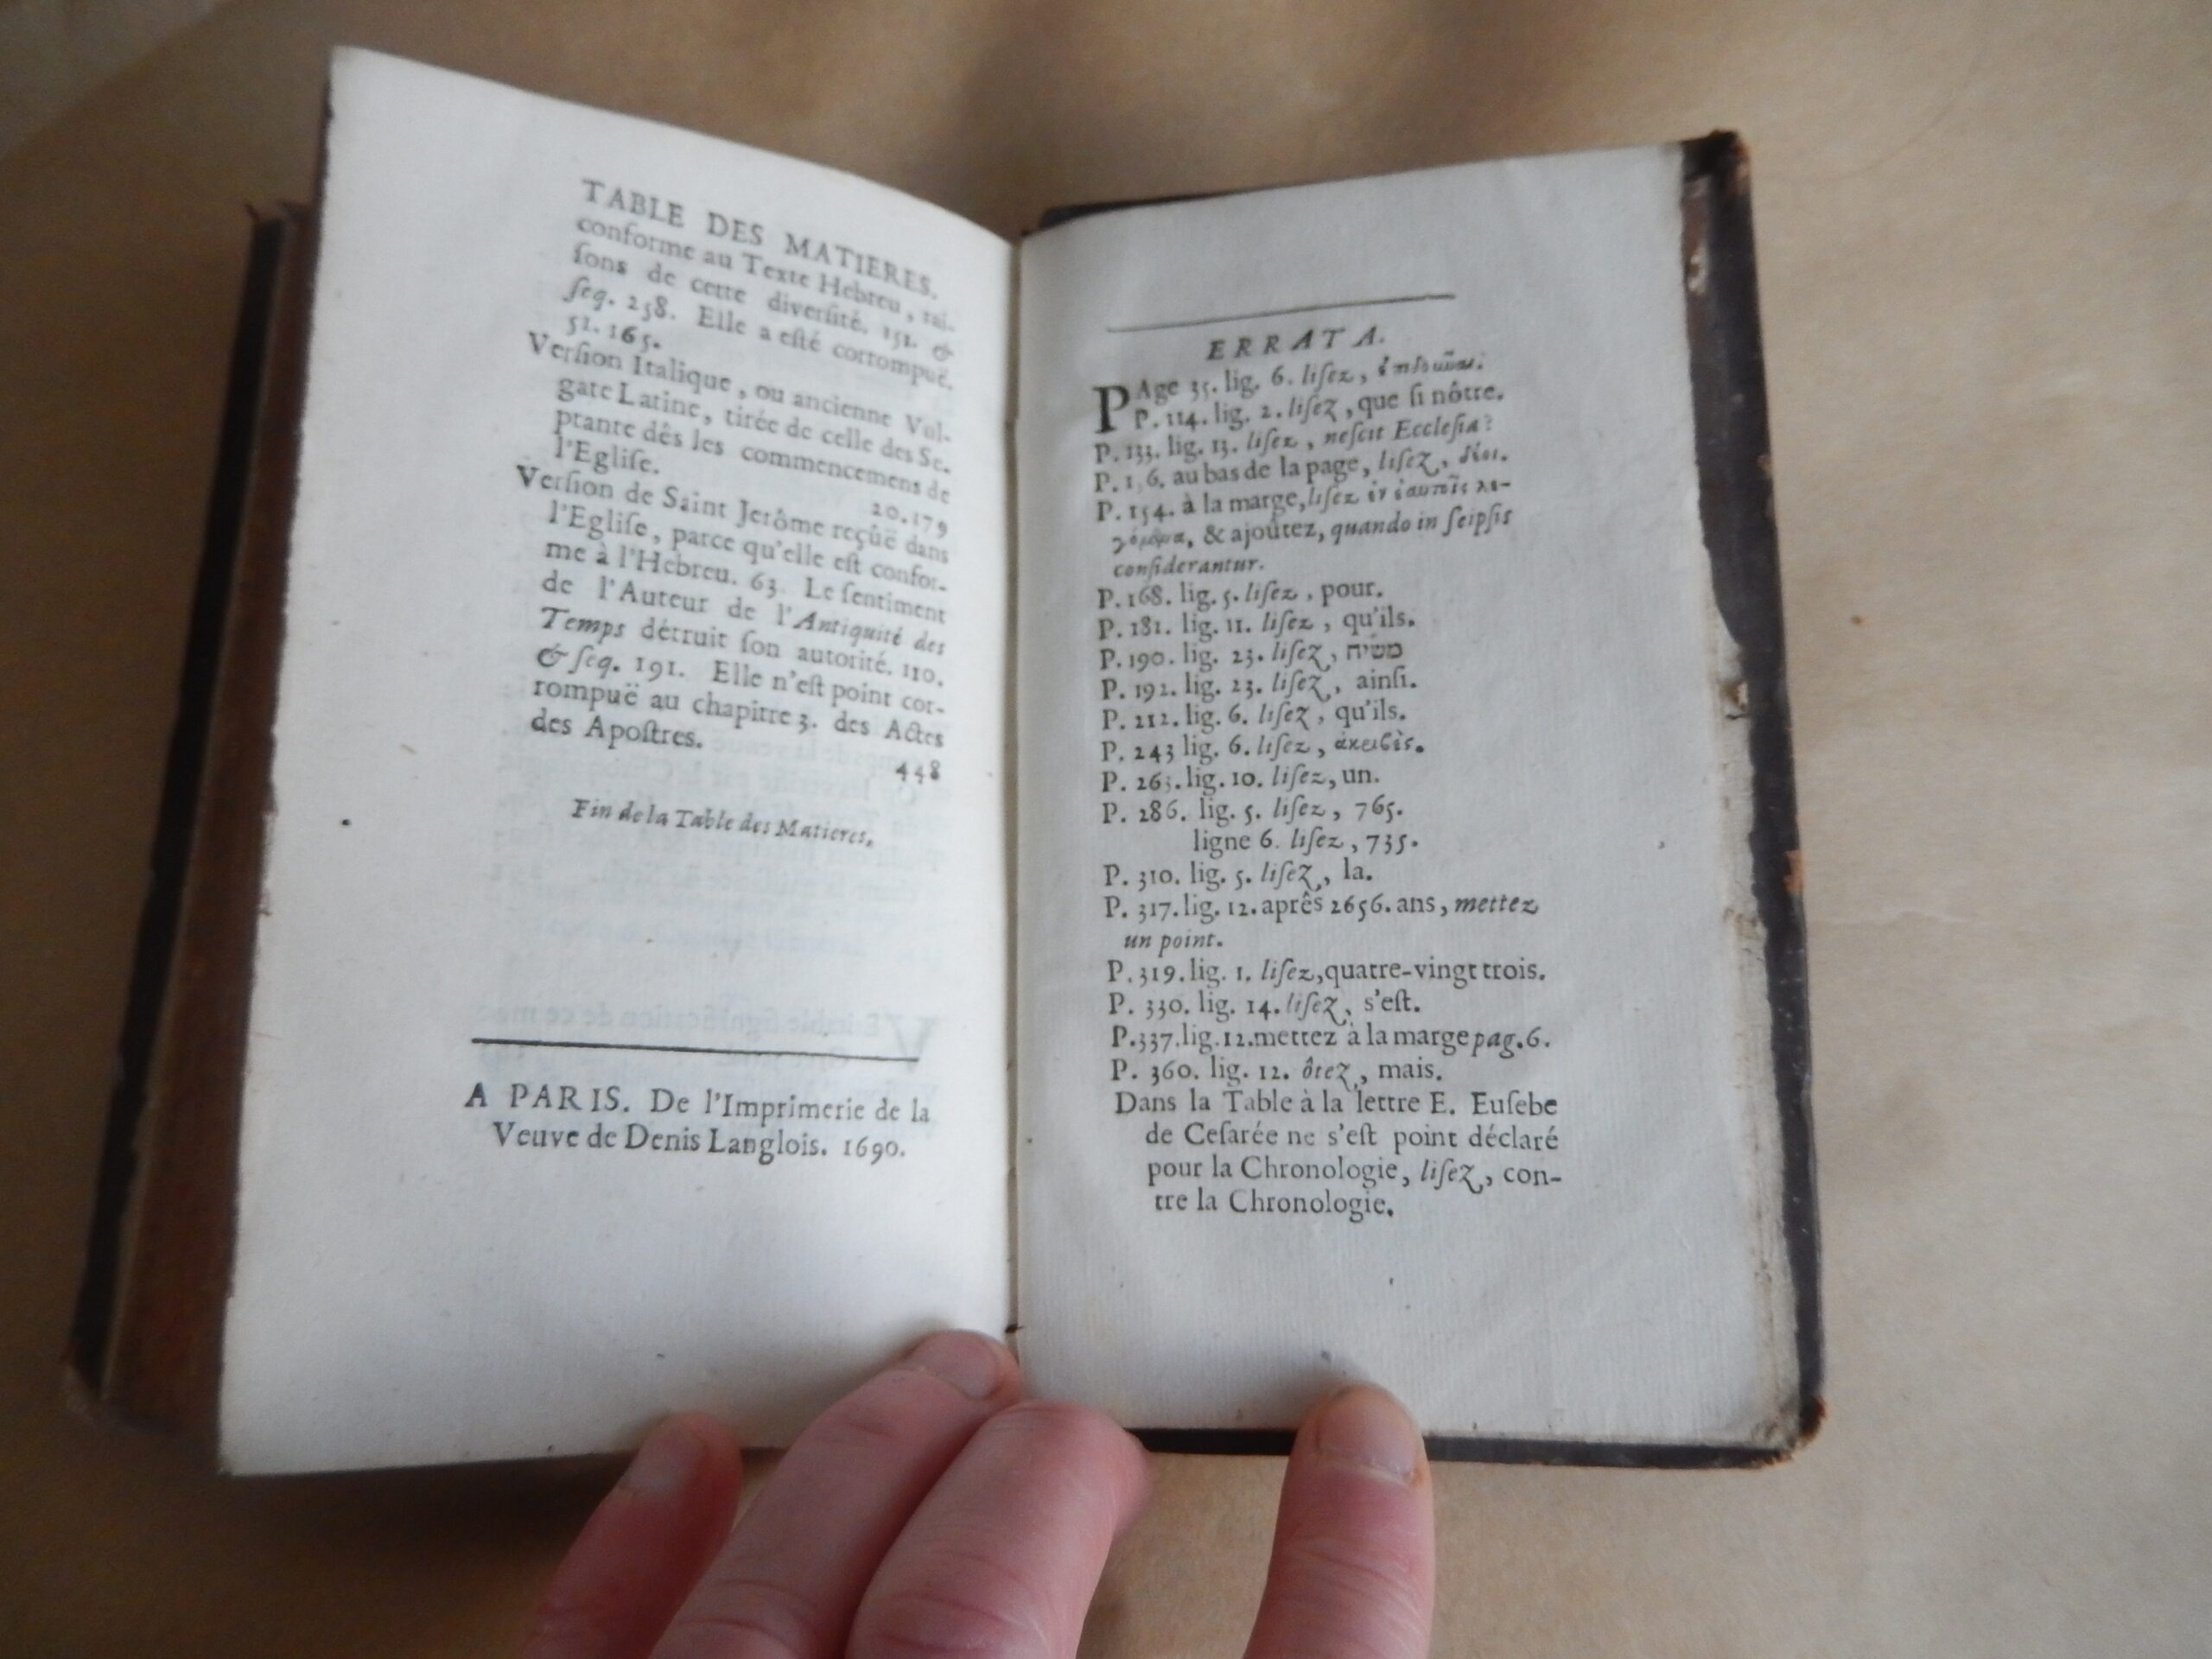 TABLE DES MATIERES.
conforme au Texte Hebreu, rai-
ſons de cette diverſité. 151. &
ſeq. 258. Elle a eſté corrompuë.
51. 165.
Verſion Italique, ou ancienne Vul-
gate Latine, tirée de celle des Se-
ptante dês les commencemens de
l'Egliſe. 20.179
Verſion de Saint Jerôme reçûë dans
l'Egliſe, parce qu'elle eſt confor-
me à l'Hebreu. 63. Le ſentiment
de l'Auteur de l'Antiquité des
Temps détruit ſon autorité. 110.
& ſeq. 191. Elle n'eſt point cor-
rompuë au chapitre 3. des Actes
des Apoſtres. 448
Fin de la Table des Matieres.
A PARIS. De l'Imprimerie de la
Veuve de Denis Langlois. 1690.
ERRATA.
PAge 35. lig. 6. liſez,
P. 114. lig. 2. liſez, que ſi nôtre.
P. 133. lig. 13. liſez, neſcit Eccleſia?
P. au bas de la page, liſez,
P. 154. à la marge, liſez ἐν ἑαυτοῖς λε-
γόμενα, & ajoûtez, quando in ſeipſis
conſiderantur.
P. 168. lig. 5. liſez, pour.
P. 181. lig. 11. liſez, qu'ils.
P. 190. lig. 23. liſez, משיח
P. 192. lig. 23. liſez, ainſi.
P. 212. lig. 6. liſez, qu'ils.
P. 243 lig. 6. liſez, ἀκριβὲς.
P. 263. lig. 10. liſez, un.
P. 286. lig. 5. liſez, 765.
ligne 6. liſez, 735.
P. 310. lig. 5. liſez, la.
P. 317. lig. 12. aprês 2656. ans, mettez
un point.
P. 319. lig. 1. liſez, quatre-vingt trois.
P. 330. lig. 14. liſez, s'eſt.
P. 337. lig. 12. mettez à la marge pag. 6.
P. 360. lig. 12. ôtez, mais.
Dans la Table à la lettre E. Euſebe
de Ceſarée ne s'eſt point déclaré
pour la Chronologie, liſez, con-
tre la Chronologie.